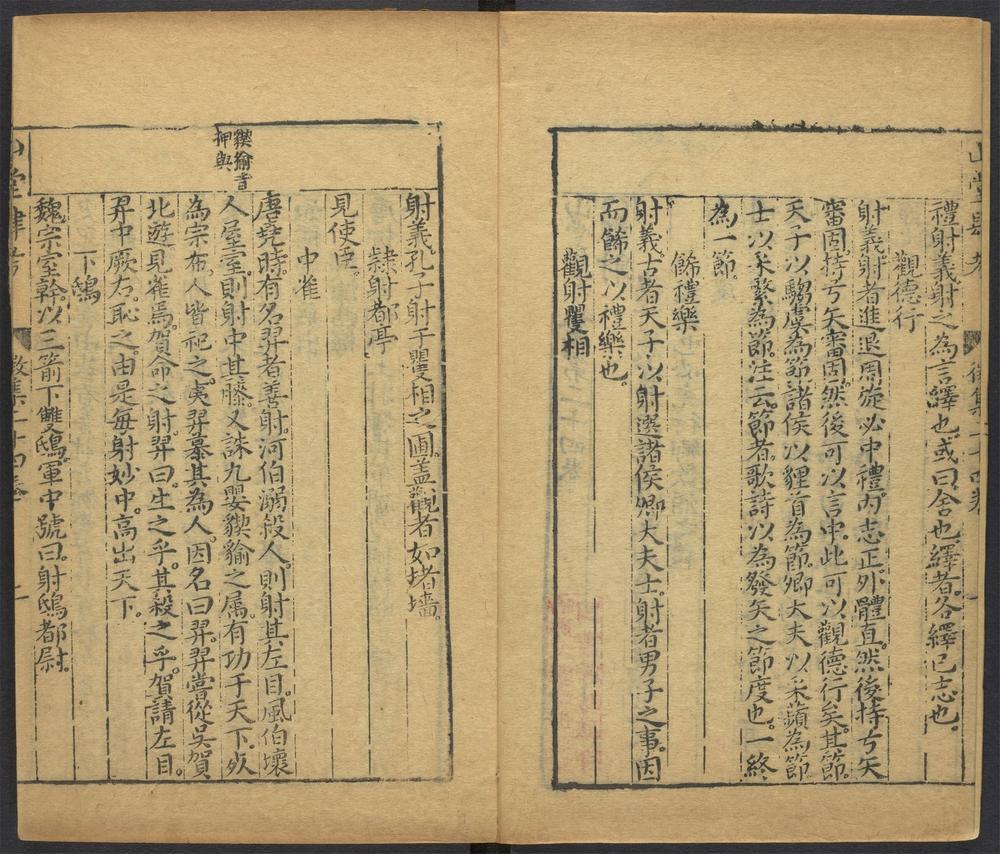 禮射義射之為言繹也或曰舍也繹者各繹已志也
觀德行
射義射者進退周旋必中禮内志正外體直然後持弓矢
審固持弓矢審固然後可以言中此可以觀德行矣其節
天子以騶虞為節諸侯以貍首為節卿大夫以采蘋為節
士以采蘩為節注云節者歌詩以為發矢之節度也一終
為一節
餙禮樂
射義古者天子以射選諸侯卿大夫士射者男子之事因
而餙之以禮樂也
觀射矍相
射義孔子射于矍相之圃盖觀者如堵墻
隸射都亭
見使臣
中雀
唐堯時有名羿者善射河伯溺殺人則射其左目風伯壞
人屋室則射中其膝又誅九嬰貏貐之属有功于天下死
貏貐音
押與
為宗布人皆祀之夷羿慕其為人因名曰羿羿嘗從吳賀
北遊見雀焉賀命之射羿曰生之乎其殺之乎賀請左目
羿中厥右恥之由是每射妙中高出天下
下鴟
魏宗室幹以三箭下雙鴟軍中號曰射鴟都尉
山堂肆考
徴集二十四卷
一